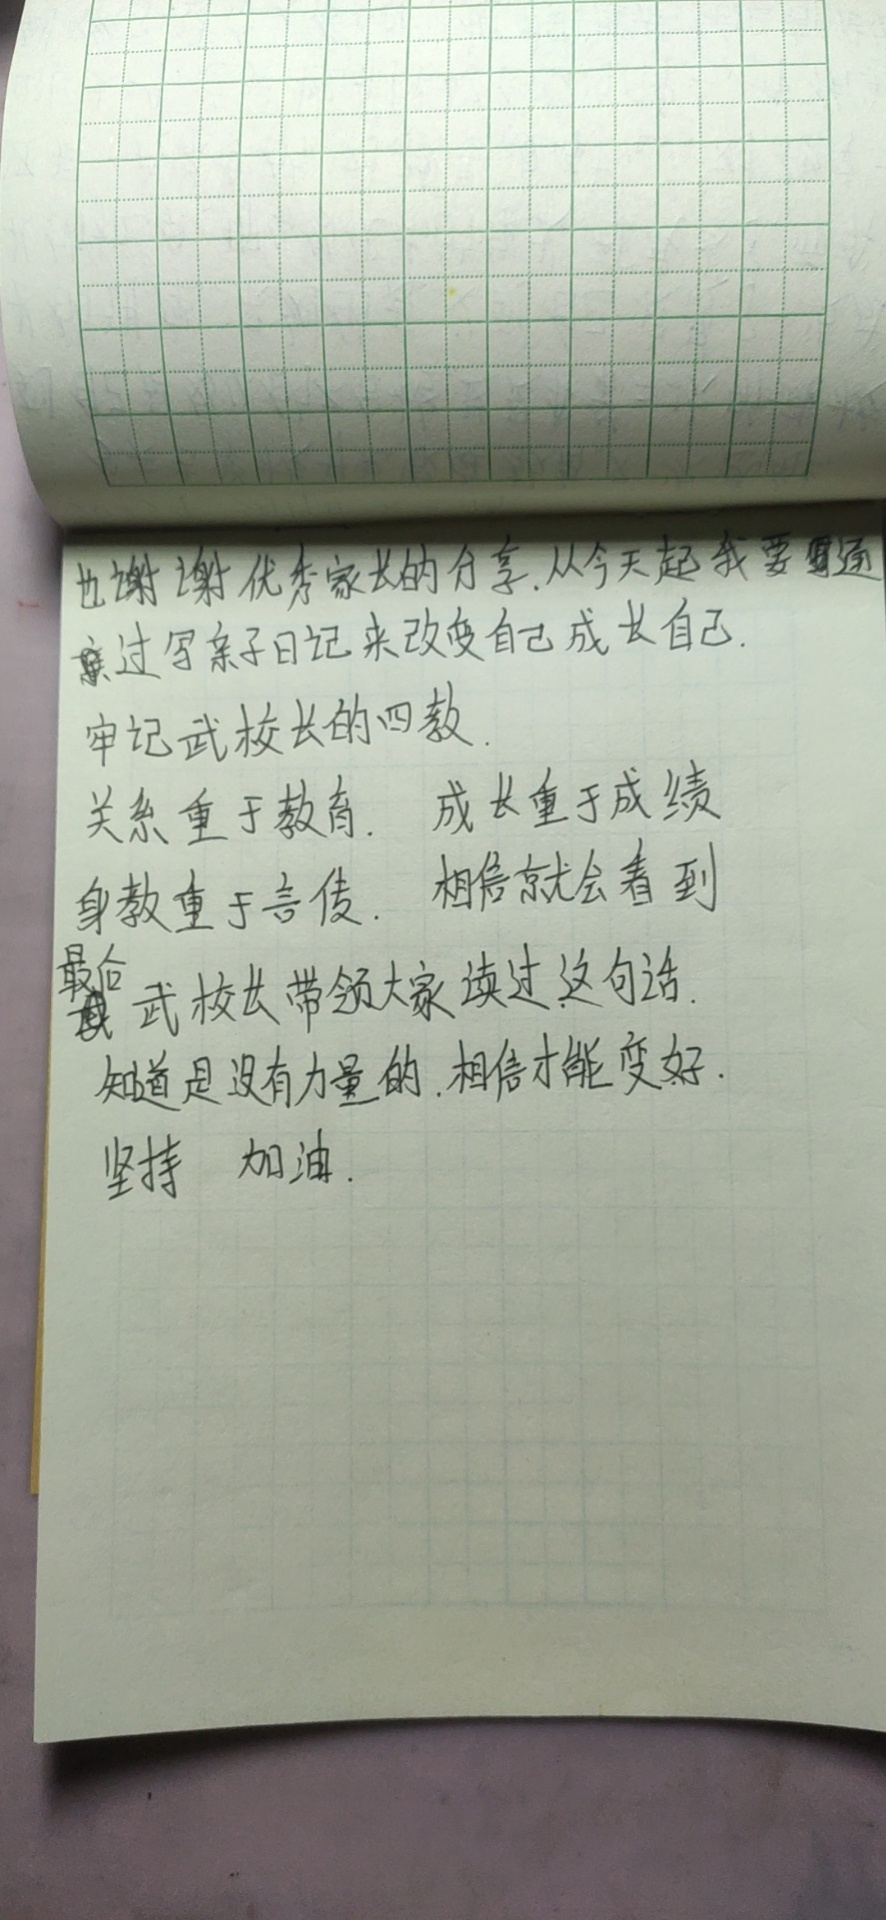 也谢谢优秀家长的分享.从今天起我要通
过写亲子日记来改变自己成长自己.
牢记武校长的四教.
关系重于教育. 成长重于成绩
身教重于言传. 相信就会看到
最后
武校长带领大家读过这句话.
知道是没有力量的.相信才能变好.
坚持 加油.